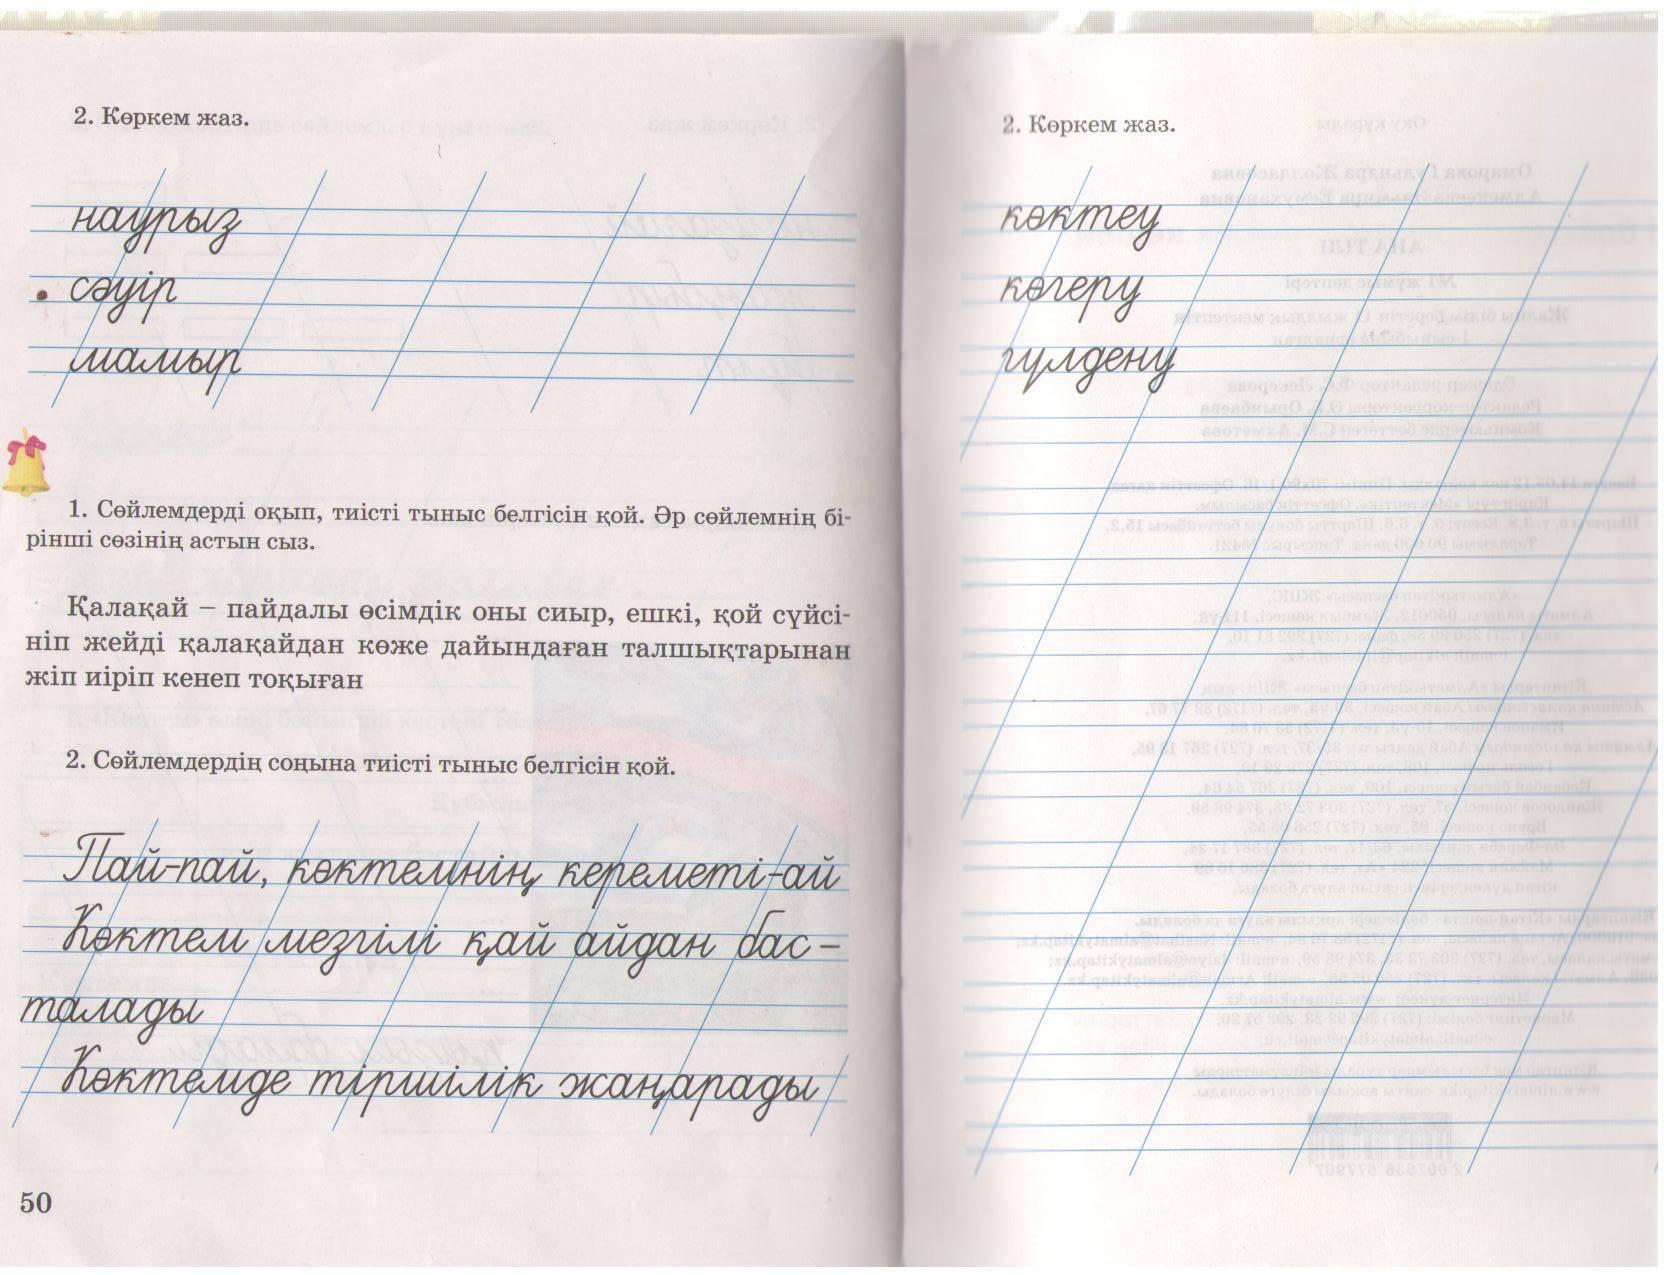 2. Көркем жаз.
наурыз
сәуір
мамыр
1. Сөйлемдерді оқып, тиісті тыныс белгісін қой. Әр сөйлемнің бі-
рінші сөзінің астын сыз.
Қалақай – пайдалы өсімдік оны сиыр, ешкі, қой сүйсі-
ніп жейді қалақайдан көже дайындаған талшықтарынан
жіп иіріп кенеп тоқыған
2. Сөйлемдердің соңына тиісті тыныс белгісін қой.
Пай-пай, көктемнің кереметі-ай
Көктем мезгілі қай айдан бас-
талады
Көктемде тіршілік жаңарады
50
2. Көркем жаз.
көктеу
көгеру
гүлдену